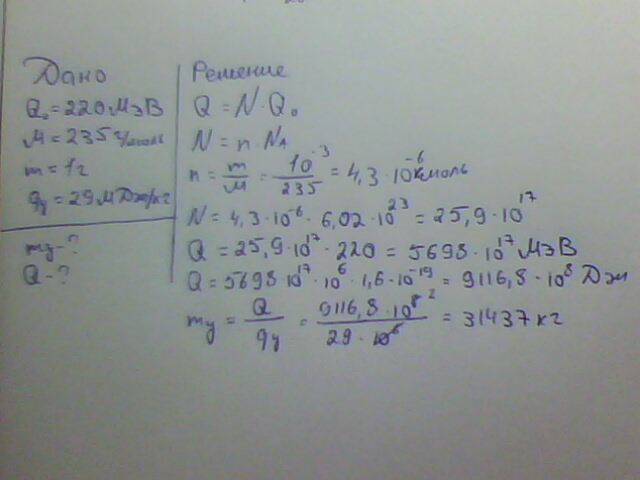 Дано
Q₀ = 220 МэВ
M = 235 г/моль
m = 1г
qy = 29 МДж/кг
my - ?
Q - ?
Решение
Q = N · Q₀
N = n · NA
n = m/M = 10⁻³/235 = 4,3 · 10⁻⁶ кмоль
N = 4,3 · 10⁻⁶ · 6,02 · 10²³ = 25,9 · 10¹⁷
Q = 25,9 · 10¹⁷ · 220 = 5698 · 10¹⁷ МэВ
Q = 5698 · 10¹⁷ · 10⁶ · 1,6 · 10⁻¹⁹ = 9116,8 · 10⁸ Дж
my = Q/qy = 9116,8 · 10⁸ ²/29 · 10⁶ = 31437 кг